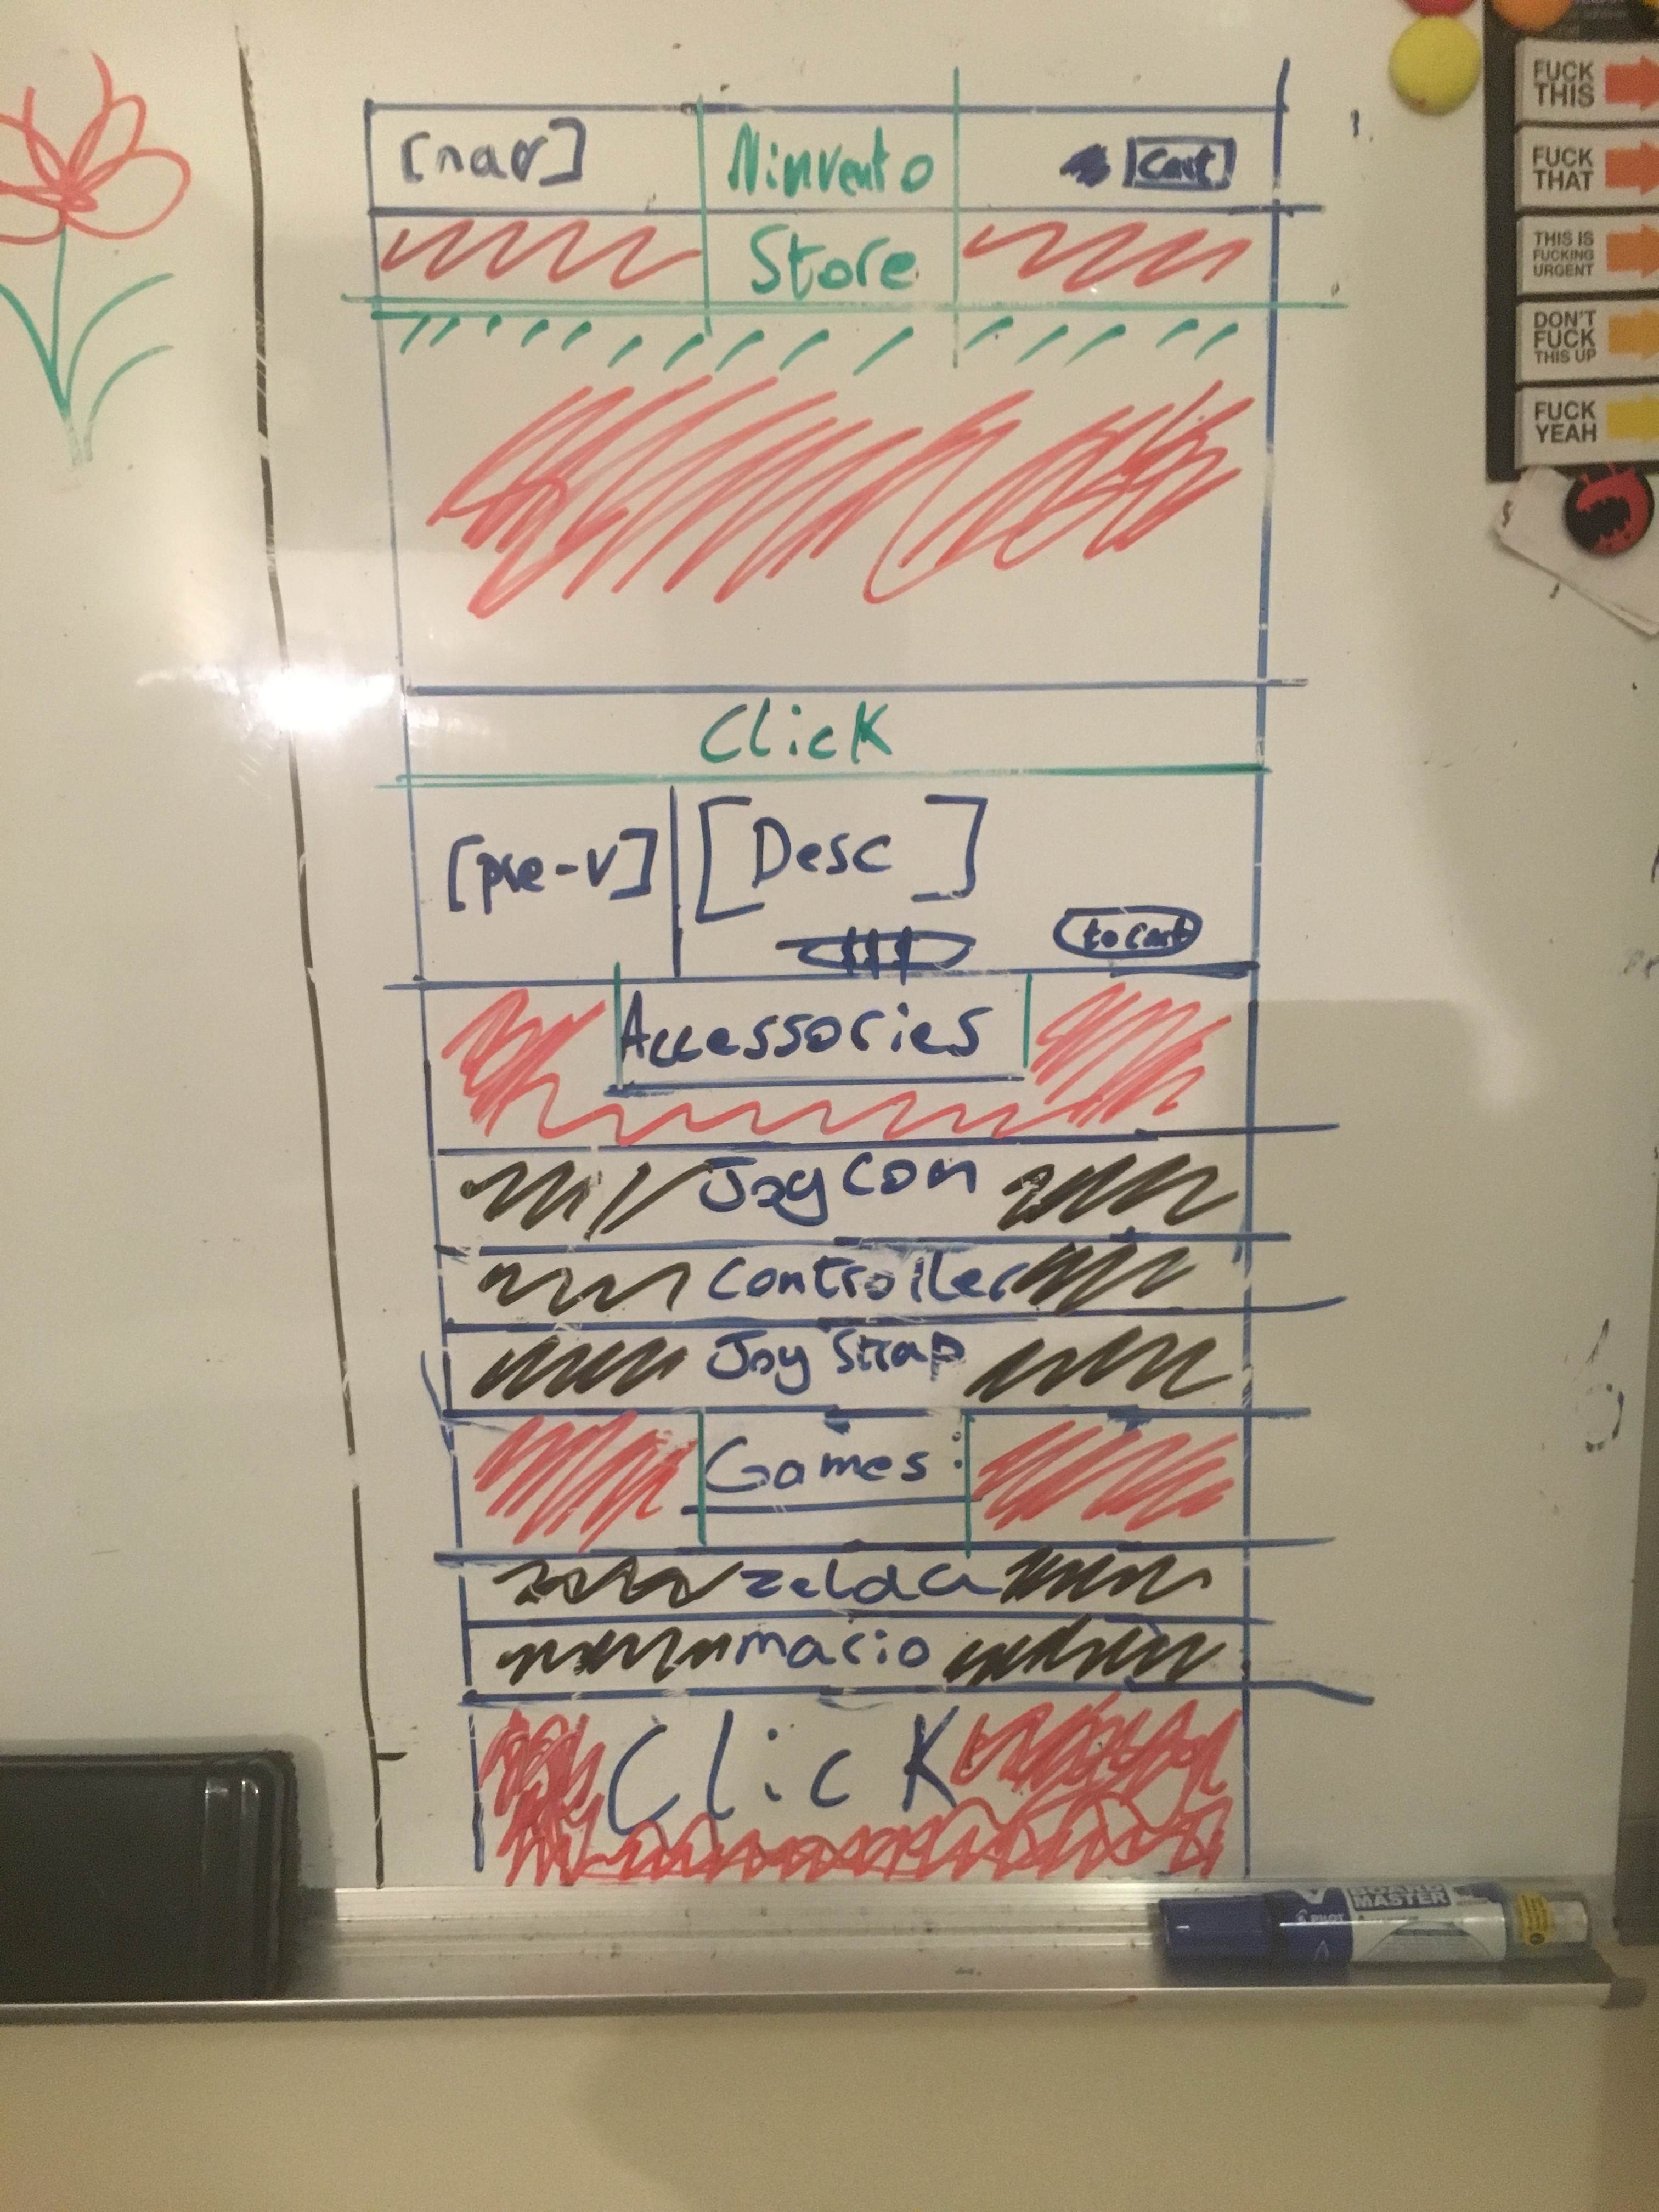 [nav] Ninvento [Cart]
Store
Click
[pre-v] [Desc]
to cart
Accessories
Joy Con
Controller
Joy Strap
Games:
Zelda
mario
Click
FUCK
THIS
FUCK
THAT
THIS IS
FUCKING
URGENT
DON'T
FUCK
THIS UP
FUCK
YEAH
BOARD
MASTER
PILOT